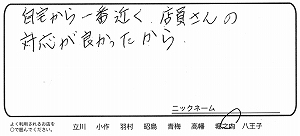 自宅から一番近く、店員さんの
対応が良かったから。
ニックネーム
よく利用されるお店を
○で囲んでください。
立川 小作 羽村 昭島 青梅 高幡 堀之内 八王子